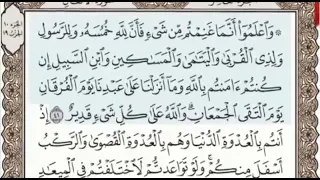 ۞ وَٱعْلَمُوٓا۟ أَنَّمَا غَنِمْتُم مِّن شَىْءٍ فَأَنَّ لِلَّهِ خُمُسَهُۥ وَلِلرَّسُولِ
وَلِذِى ٱلْقُرْبَىٰ وَٱلْيَتَـٰمَىٰ وَٱلْمَسَـٰكِينِ وَٱبْنِ ٱلسَّبِيلِ إِن
كُنتُمْ ءَامَنتُم بِٱللَّهِ وَمَآ أَنزَلْنَا عَلَىٰ عَبْدِنَا يَوْمَ ٱلْفُرْقَانِ
يَوْمَ ٱلْتَقَى ٱلْجَمْعَانِ ۗ وَٱللَّهُ عَلَىٰ كُلِّ شَىْءٍ قَدِيرٌ ٤١ إِذْ
أَنتُم بِٱلْعُدْوَةِ ٱلدُّنْيَا وَهُم بِٱلْعُدْوَةِ ٱلْقُصْوَىٰ وَٱلرَّكْبُ
أَسْفَلَ مِنكُمْ ۚ وَلَوْ تَوَاعَدتُّمْ لَٱخْتَلَفْتُمْ فِى ٱلْمِيعَـٰدِ